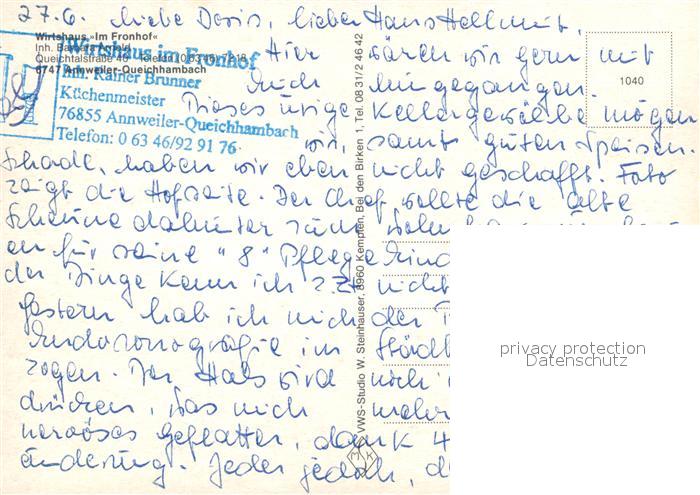 27.6. Liebe Doris, lieber Hans Hellmut,
Wirtshaus »Im Fronhof«
Inh. Barbara Arnold
Queichtalstraße 49 Telefon (0 63 46) 72 18
6747 Annweiler-Queichhambach
Wirtshaus im Fronhof
Inh. Rainer Brunner
Küchenmeister
76855 Annweiler-Queichhambach
Telefon: 0 63 46/92 91 76
1040
Hier wären wir gern mit
Euch eingegangen.
Dieses urige Kellergewölbe mögen
wir, samt guten Speisen.
Schade, haben wir eben nicht geschafft. Foto
zeigt die Hofseite. Der Chef wollte die alte
Scheune dahinter zum
en für seine "8" Pflege
der Dinge kenn ich z.Zt. nicht
Gestern hab ich mich der
Endosonografie im Städt
zogen. Der Hals wird noch
drücken, was mich mehr
nervöses Geflatter, dank 4
änderung. Jeder jedoch, d
VWS-Studio W. Steinhauser, 8960 Kempten, Bei den Birken 1, Tel. 08 31/2 46 42
privacy protection
Datenschutz